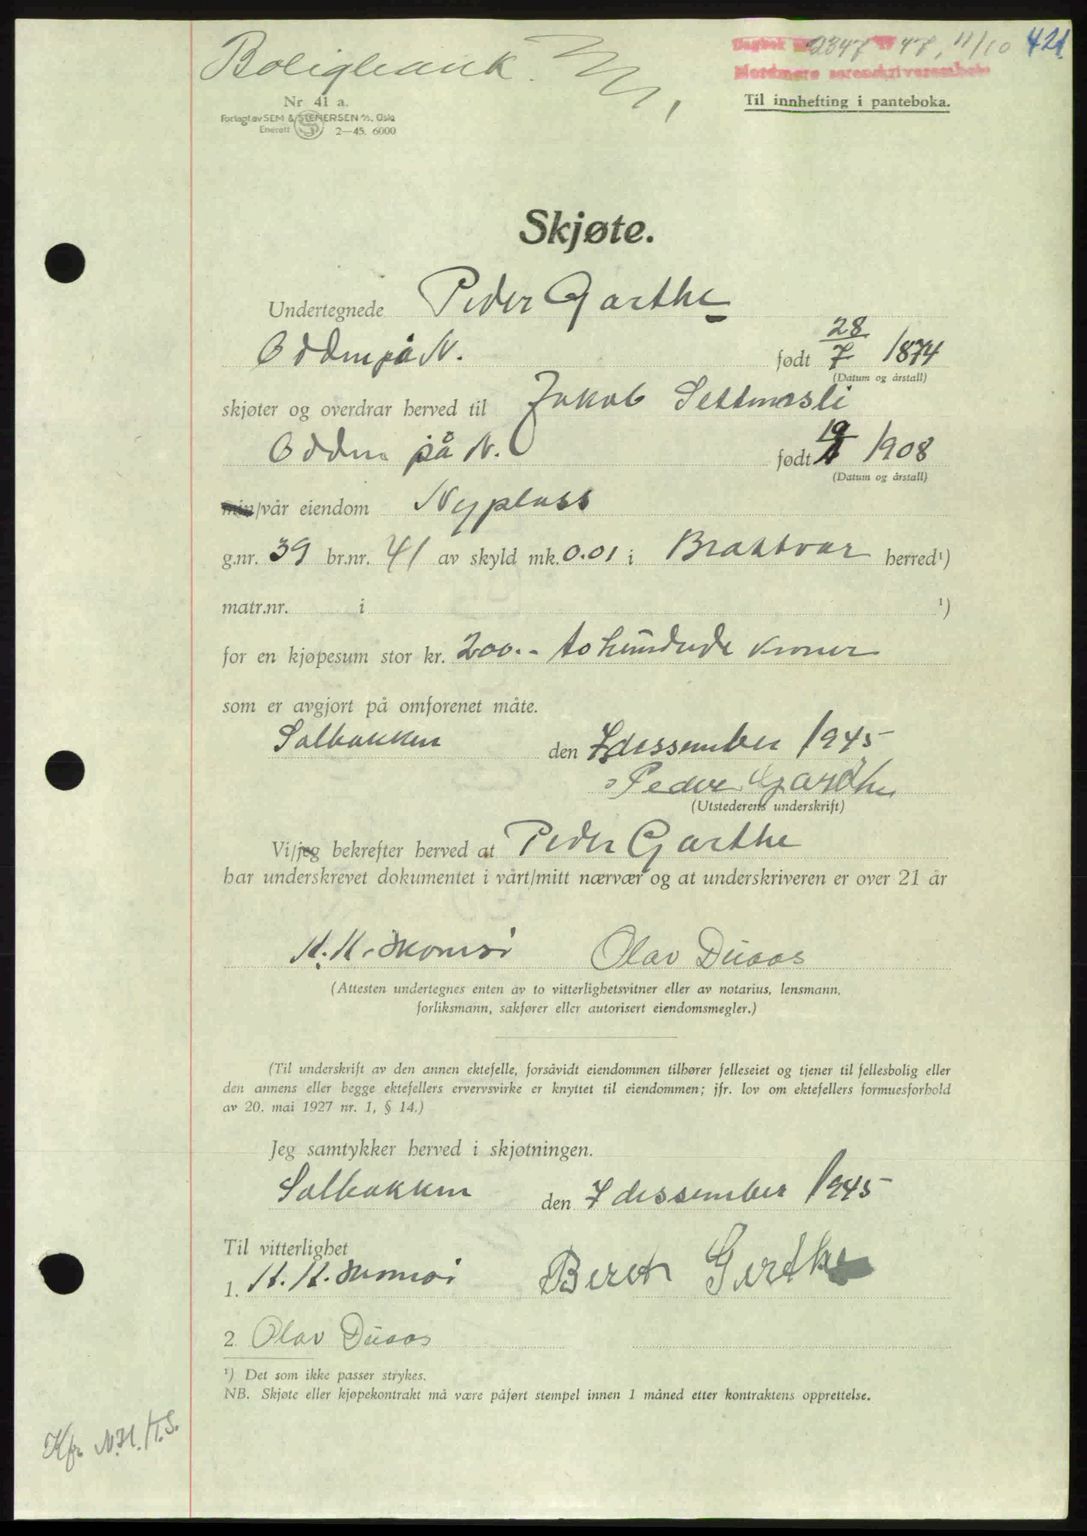 Boligbank.
Dagbok 2847 47, 11/10 421
Nordmøre sorenskriverembete
Nr 41 a.
Forlagt av SEM & STENERSEN A/S, Oslo
Enerett 2—45. 6000
Til innhefting i panteboka.
Skjøte.
Undertegnede Peder Garthe
Odden på N. født 28/7 1874
(Datum og årstall)
skjøter og overdrar herved til Jakob Settmasli
Odden på N. født 1908
(Datum og årstall)
min/vår eiendom Nyplass
g.nr. 39 br.nr. 41 av skyld mk. 0.01 i Brattvær herred¹)
matr.nr. i ¹)
for en kjøpesum stor kr. 200.- to hundrede kroner
som er avgjort på omforenet måte.
Solbakken den 7 dessember 1945
Peder Garthe
(Utstederens underskrift)
Vi/jeg bekrefter herved at Peder Garthe
har underskrevet dokumentet i vårt/mitt nærvær og at underskriveren er over 21 år
Olav Duaas
(Attesten undertegnes enten av to vitterlighetsvitner eller av notarius, lensmann,
forliksmann, sakfører eller autorisert eiendomsmegler.)
(Til underskrift av den annen ektefelle, forsåvidt eiendommen tilhører felleseiet og tjener til fellesbolig eller
den annens eller begge ektefellers ervervsvirke er knyttet til eiendommen; jfr. lov om ektefellers formuesforhold
av 20. mai 1927 nr. 1, § 14.)
Jeg samtykker herved i skjøtningen.
Solbakken den 7 dessember 1945
Til vitterlighet
1. Beret Garthe
2 Olav Duaas
¹) Det som ikke passer strykes.
NB. Skjøte eller kjøpekontrakt må være påført stempel innen 1 måned etter kontraktens opprettelse.
Kfr. N.H./T.S.